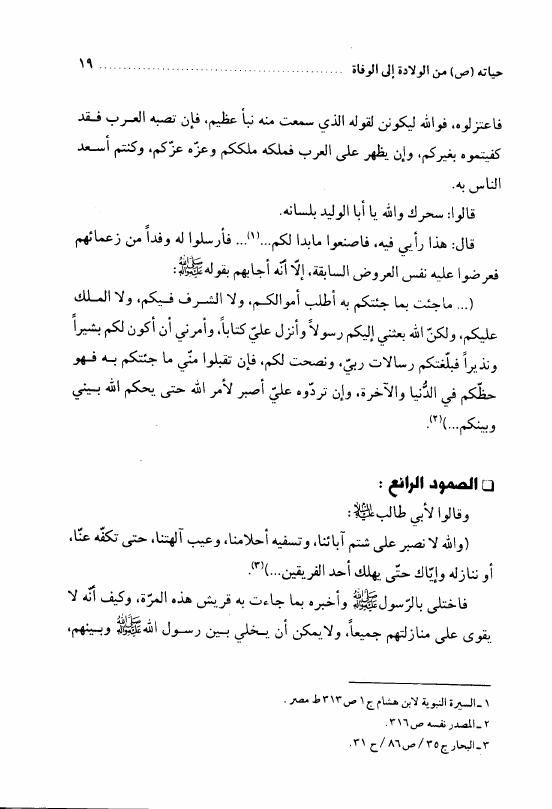 حياته (ص) من الولادة إلى الوفاة ................................................ ١٩
فاعتزلوه، فوالله ليكونن لقوله الذي سمعت منه نبأ عظيم، فإن تصبه العرب فقد
كفيتموه بغيركم، وإن يظهر على العرب فملكه ملككم وعزّه عزّكم، وكنتم أسعد
الناس به.
قالوا: سحرك والله يا أبا الوليد بلسانه.
قال: هذا رأيي فيه، فاصنعوا مابدا لكم...(١)... فأرسلوا له وفداً من زعمائهم
فعرضوا عليه نفس العروض السابقة، إلّا أنّه أجابهم بقوله ﷺ:
(... ماجئت بما جئتكم به أطلب أموالكم، ولا الشرف فيكم، ولا الملك
عليكم، ولكنّ الله بعثني إليكم رسولاً وأنزل عليّ كتاباً، وأمرني أن أكون لكم بشيراً
ونذيراً فبلّغتكم رسالات ربيّ، ونصحت لكم، فإن تقبلوا منّي ما جئتكم به فهو
حظّكم في الدُّنيا والآخرة، وإن تردّوه عليّ أصبر لأمر الله حتى يحكم الله بيني
وبينكم...)(٢).
❑ الصمود الرائع :
وقالوا لأبي طالب عليه السلام:
(والله لا نصبر على شتم آبائنا، وتسفيه أحلامنا، وعيب آلهتنا، حتى تكفّه عنّا،
أو ننازله وإيّاك حتّى يهلك أحد الفريقين...)(٣).
فاختلى بالرّسول ﷺ وأخبره بما جاءت به قريش هذه المرّة، وكيف أنّه لا
يقوى على منازلتهم جميعاً، ولايمكن أن يخلي بين رسول الله ﷺ وبينهم،
١ ـ السيرة النبوية لابن هشام ج١ ص٣١٣ ط مصر.
٢ ـ المصدر نفسه ص٣١٦.
٣ ـ البحار ج٣٥ / ص٨٦ / ح ٣١.